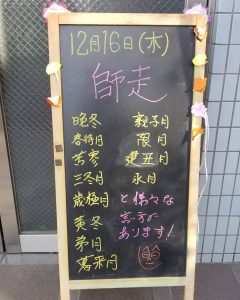 12月16日(木)
師走
晩冬
春待月
苦寒
三冬月
歳極月
黄冬
弟月
暮来月
親子月
限月
建丑月
氷月
と様々な
言い方が
あります!